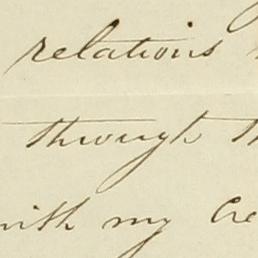 relations
through
with my